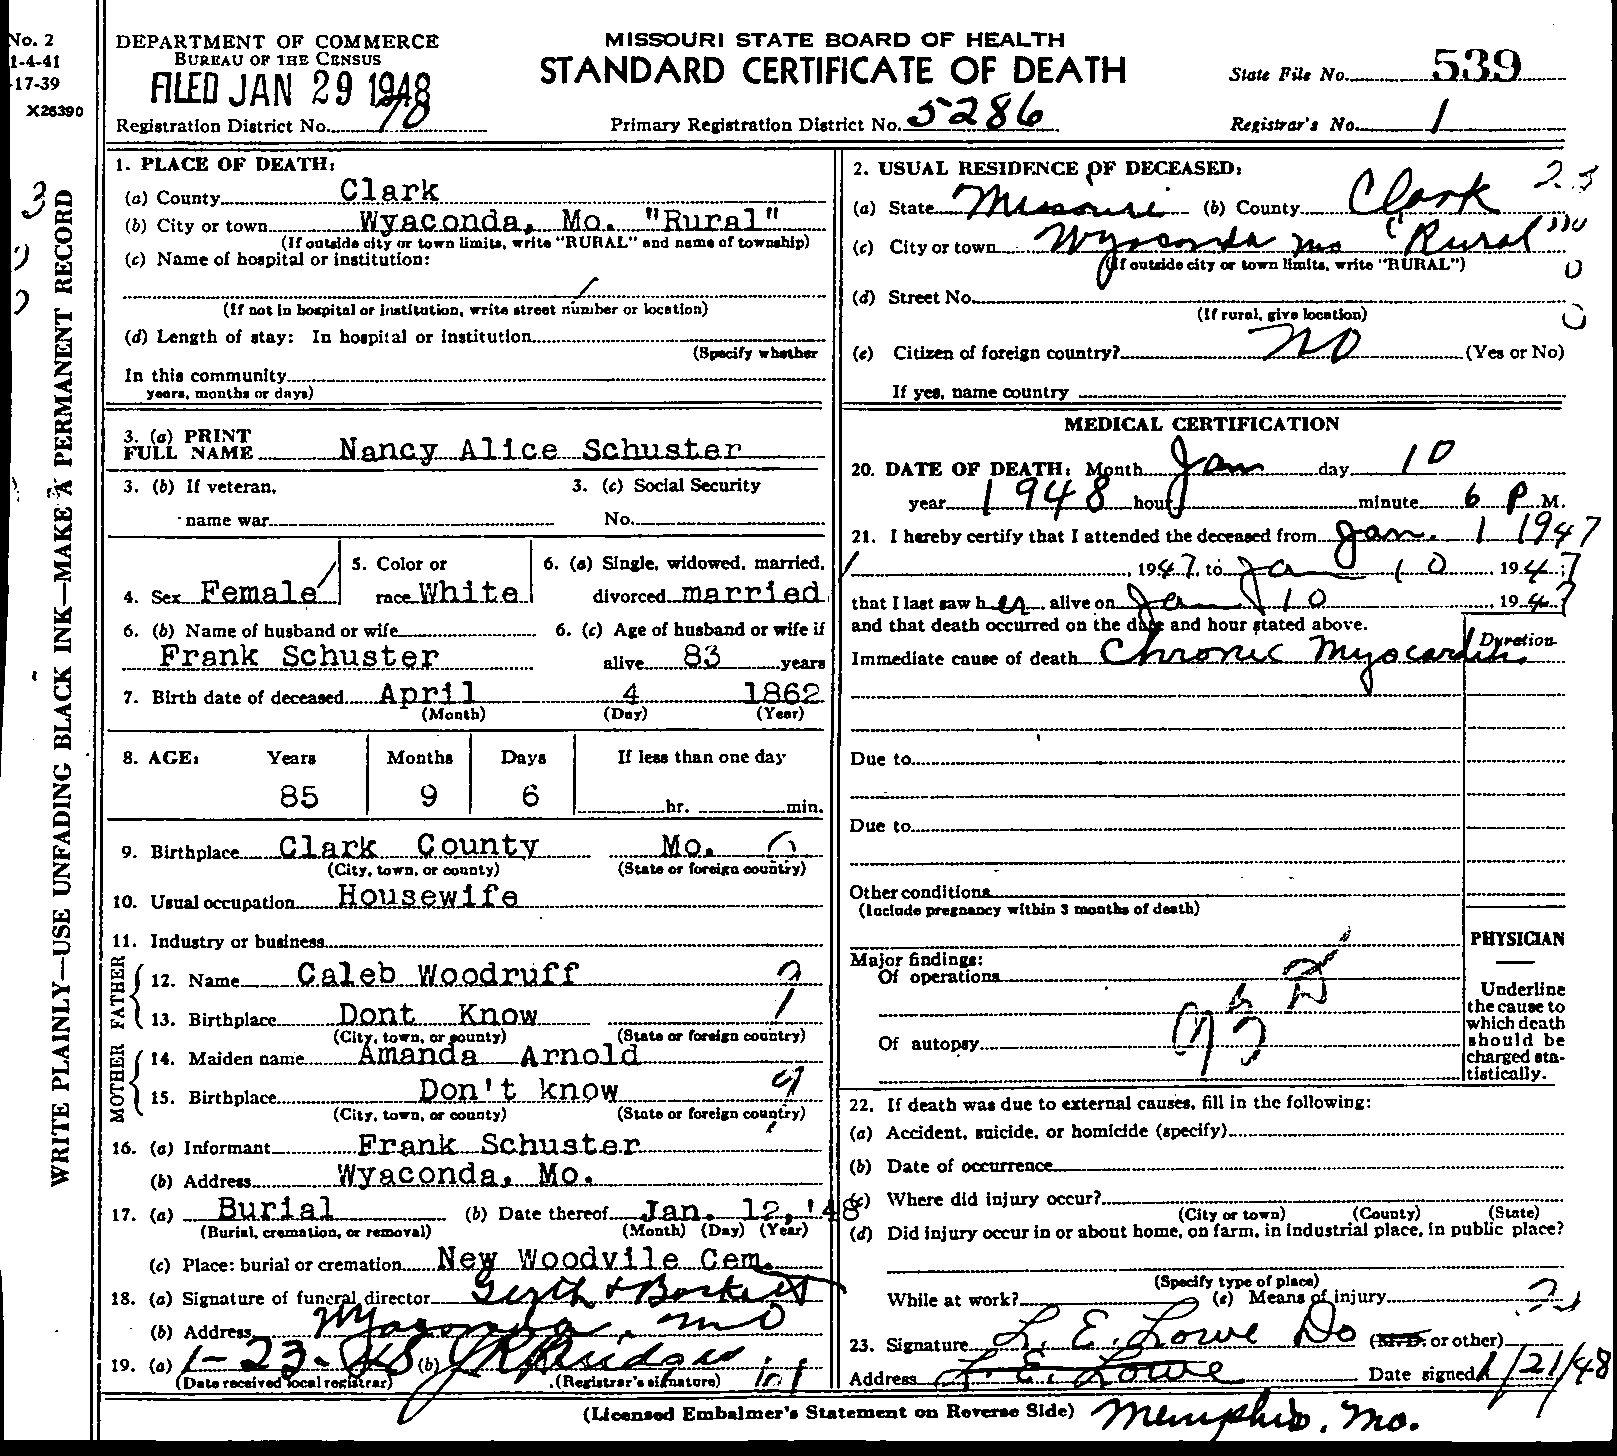 No. 2
1-4-41
-17-39
X26390
WRITE PLAINLY—USE UNFADING BLACK INK—MAKE A PERMANENT RECORD
DEPARTMENT OF COMMERCE
BUREAU OF THE CENSUS
FILED JAN 29 1948
Registration District No. 70
MISSOURI STATE BOARD OF HEALTH
STANDARD CERTIFICATE OF DEATH
Primary Registration District No. 5286
State File No. 539
Registrar's No. 1
1. PLACE OF DEATH:
(a) County Clark
(b) City or town Wyaconda, Mo. "Rural"
(If outside city or town limits, write "RURAL" and name of township)
(c) Name of hospital or institution:
(If not in hospital or institution, write street number or location)
(d) Length of stay: In hospital or institution
(Specify whether
In this community
years, months or days)
3. (a) PRINT
FULL NAME Nancy Alice Schuster
3. (b) If veteran,
name war
3. (c) Social Security
No.
4. Sex Female
5. Color or
race White
6. (a) Single, widowed, married,
divorced married
6. (b) Name of husband or wife
Frank Schuster
6. (c) Age of husband or wife if
alive 83 years
7. Birth date of deceased April 4 1862
(Month) (Day) (Year)
8. AGE: Years Months Days If less than one day
85 9 6 hr. min.
9. Birthplace Clark County Mo.
(City, town, or county) (State or foreign country)
10. Usual occupation Housewife
11. Industry or business
FATHER
12. Name Caleb Woodruff
13. Birthplace Dont Know
(City, town, or county) (State or foreign country)
MOTHER
14. Maiden name Amanda Arnold
15. Birthplace Don't know
(City, town, or county) (State or foreign country)
16. (a) Informant Frank Schuster
(b) Address Wyaconda, Mo.
17. (a) Burial (b) Date thereof Jan. 12, '48
(Burial, cremation, or removal) (Month) (Day) (Year)
(c) Place: burial or cremation New Woodvile Cem.
18. (a) Signature of funeral director
(b) Address Wyaconda, Mo
19. (a) 1-23-48 (b) J R Bridges
(Date received local registrar) (Registrar's signature)
2. USUAL RESIDENCE OF DECEASED:
(a) State Missouri (b) County Clark
(c) City or town Wyaconda Mo "Rural"
(If outside city or town limits, write "RURAL")
(d) Street No.
(If rural, give location)
(e) Citizen of foreign country? No (Yes or No)
If yes, name country
MEDICAL CERTIFICATION
20. DATE OF DEATH: Month Jan day 10
year 1948 hour minute 6 P M.
21. I hereby certify that I attended the deceased from Jan. 1 1947
, 1947, to Jan 10 1947
that I last saw her alive on Jan 10, 1947
and that death occurred on the date and hour stated above.
Duration
Immediate cause of death Chronic Myocarditis
Due to
Due to
Other conditions
(Include pregnancy within 3 months of death)
Major findings:
Of operations
Of autopsy
PHYSICIAN
Underline
the cause to
which death
should be
charged sta-
tistically.
22. If death was due to external causes, fill in the following:
(a) Accident, suicide, or homicide (specify)
(b) Date of occurrence
(c) Where did injury occur?
(City or town) (County) (State)
(d) Did injury occur in or about home, on farm, in industrial place, in public place?
(Specify type of place)
While at work? (e) Means of injury
23. Signature L. E. Lowe Do (M.D. or other)
Address L. E. Lowe Date signed 1/21/48
(Licensed Embalmer's Statement on Reverse Side) Memphis, Mo.